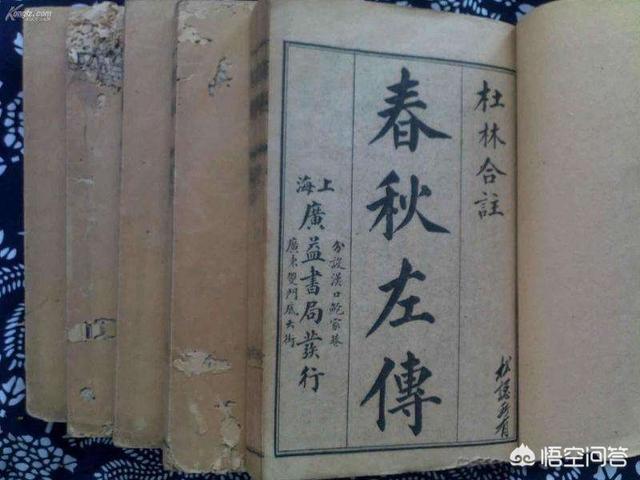 杜林合註
春秋左傳
上海
廣益書局發行
分設漢口鮑家巷
廣東雙門底大街
Kongfz.com
悟空问答